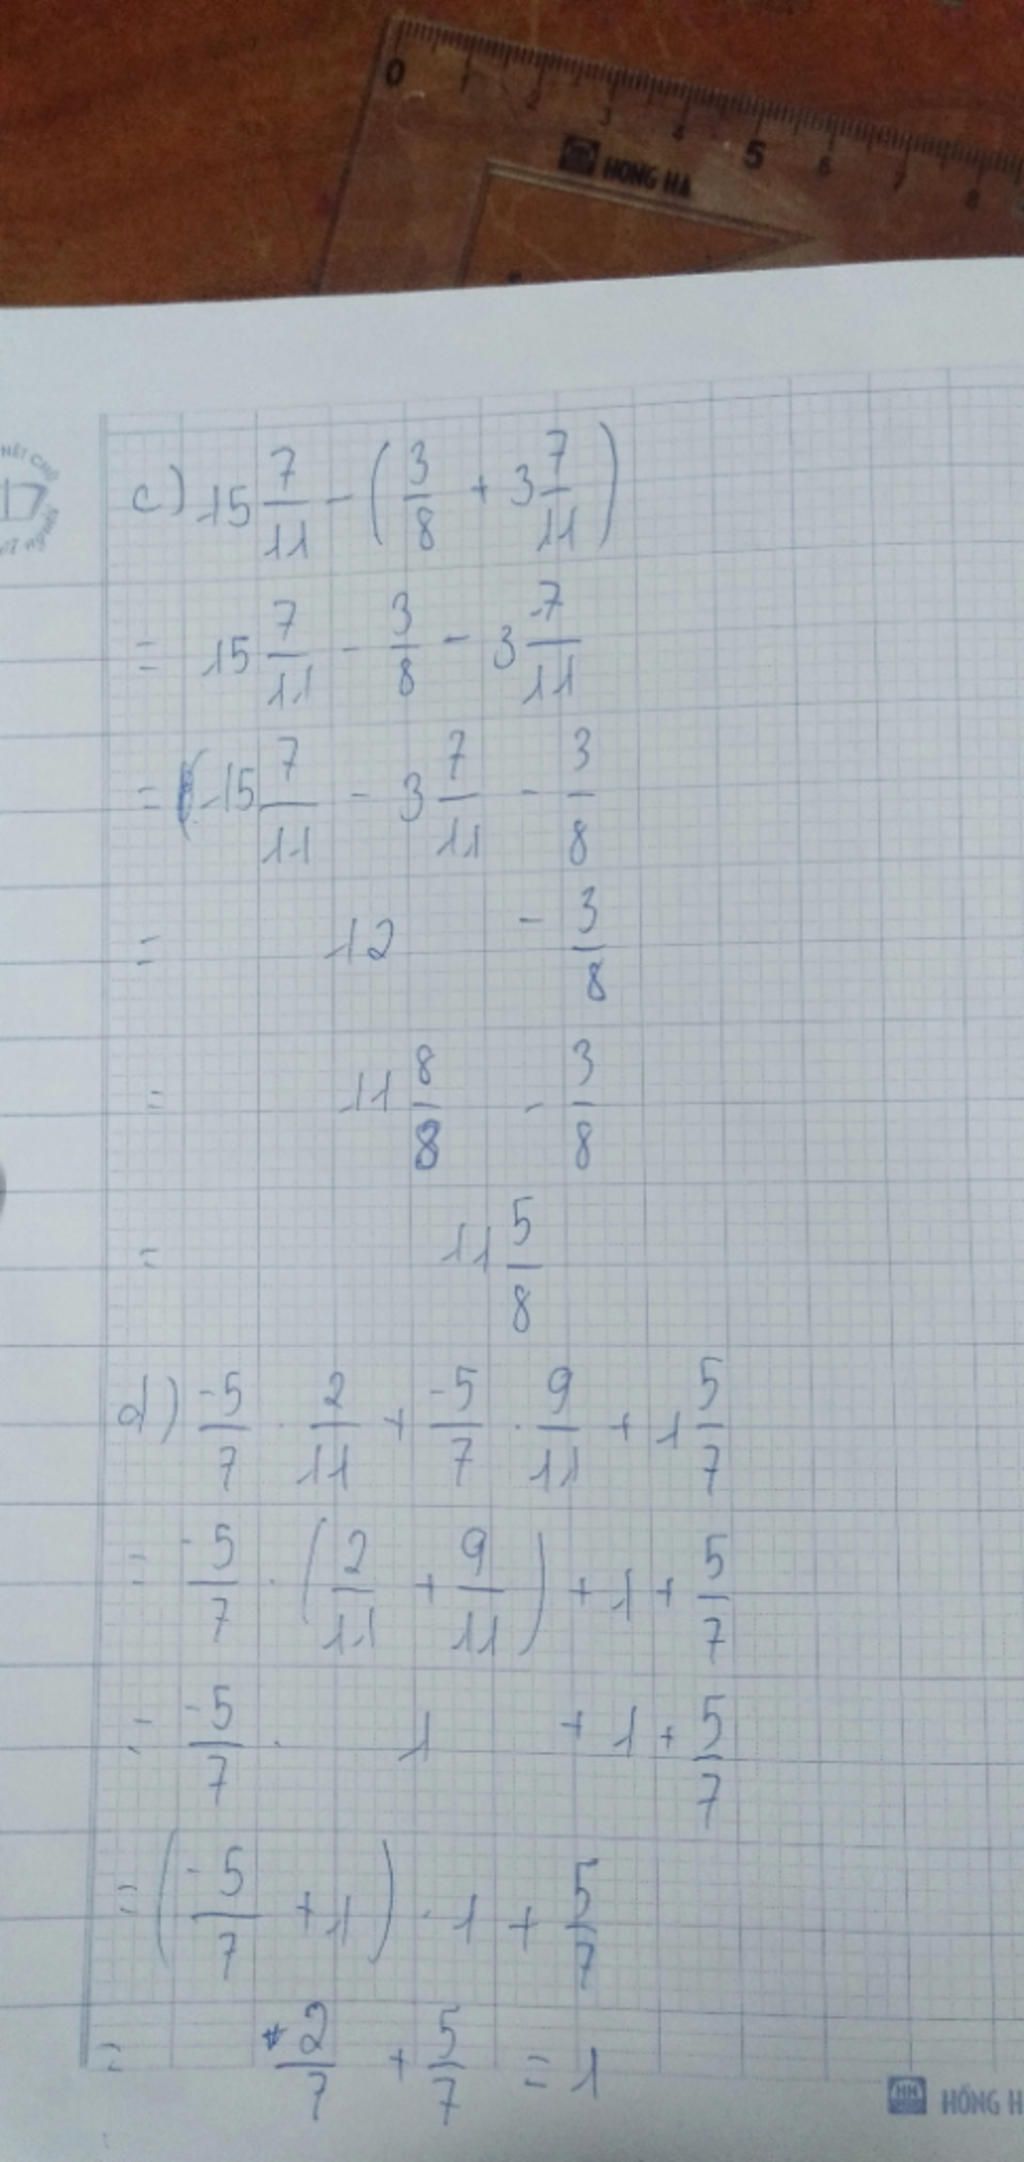 0 1 2 3 4 5 6 7 8
HONG HA
NÉT CHỮ
17
c) 15 7/11 - (3/8 + 3 7/11)
= 15 7/11 - 3/8 - 3 7/11
= (15 7/11 - 3 7/11 - 3/8
= 12 - 3/8
= 11 8/8 - 3/8
= 11 5/8
d) -5/7 . 2/11 + -5/7 . 9/11 + 1 5/7
= -5/7 . (2/11 + 9/11) + 1 + 5/7
= -5/7 . 1 + 1 + 5/7
= (-5/7 + 1) . 1 + 5/7
= 2/7 + 5/7 = 1
HH HỒNG H